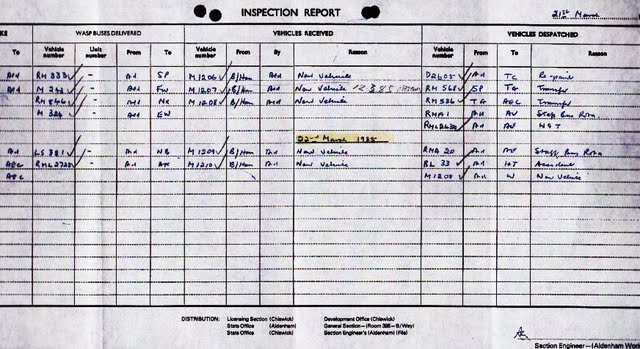 INSPECTION REPORT 21st March
KE WASP BUSES DELIVERED VEHICLES RECEIVED VEHICLES DESPATCHED
To Vehicle number Unit number From To Vehicle number From By Reason Vehicle number From To Reason
Ald RM 333 - Ald SP M1206 B/Hom Ald New Vehicle D2605 Ald TC Repaint
Ald M 242 - Ald FW M1207 B/Hom Ald New Vehicle RM 568 SP TG Transfer
Ald RM 846 - Ald NX M1208 B/Hom Ald New Vehicle RM 526 TG AEC Transfer
M 324 - Ald EW RMA1 Ald AV Staff Bus Rota
Ald AV
22nd March 1985
Ald LS 381 - Ald NB M1209 B/Hom Ald New Vehicle RMA 20 Ald AV Staff Bus Rota
AEC RML2722 - Ald M1210 B/Hom Ald New Vehicle RL 33 Ald HT Accident
AEC M1200 Ald W New Vehicle
DISTRIBUTION: Licensing Section (Chiswick) Development Office (Chiswick)
Stats Office (Aldenham) General Section—(Room 395-B/Way)
Stats Office (Chiswick) Section Engineer's (Aldenham) (File)
Section Engineer—(Aldenham Work